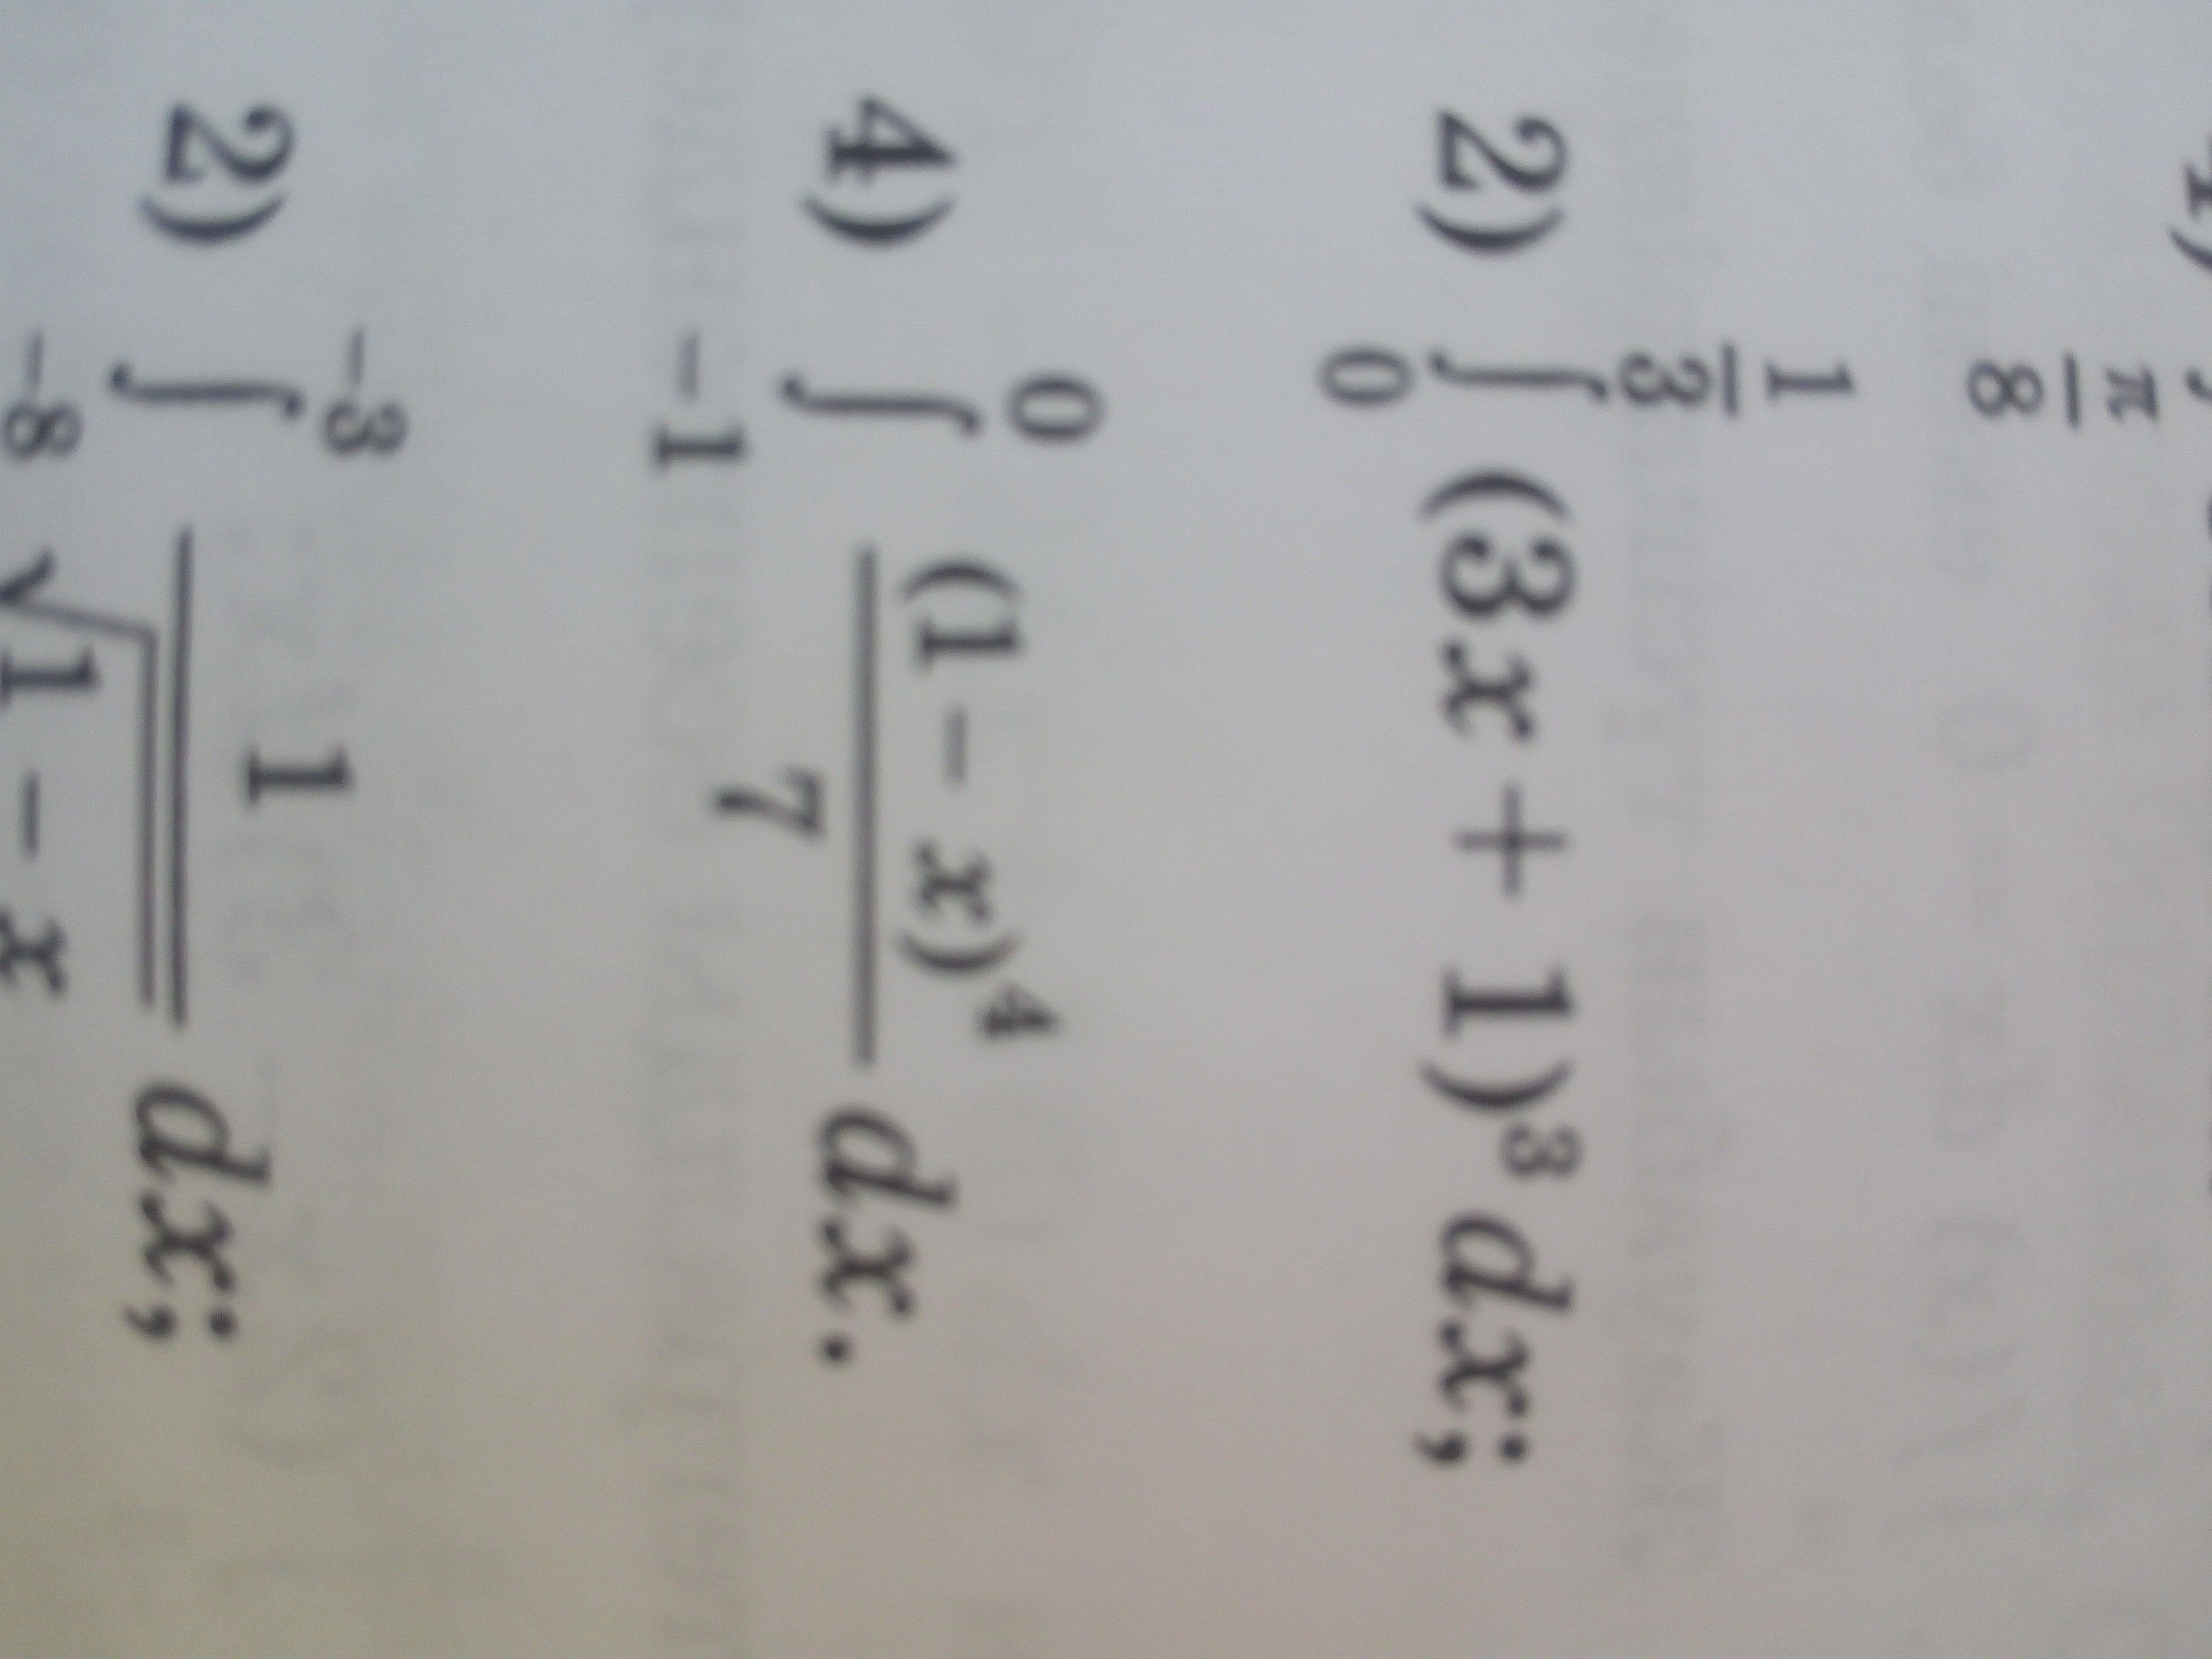 π/8
2) ∫_0^{1/3} (3x + 1)³ dx;
4) ∫_{-1}^{0} (1 − x)⁴/7 dx.
2) ∫_{-8}^{-3} 1/√(1 − x) dx;